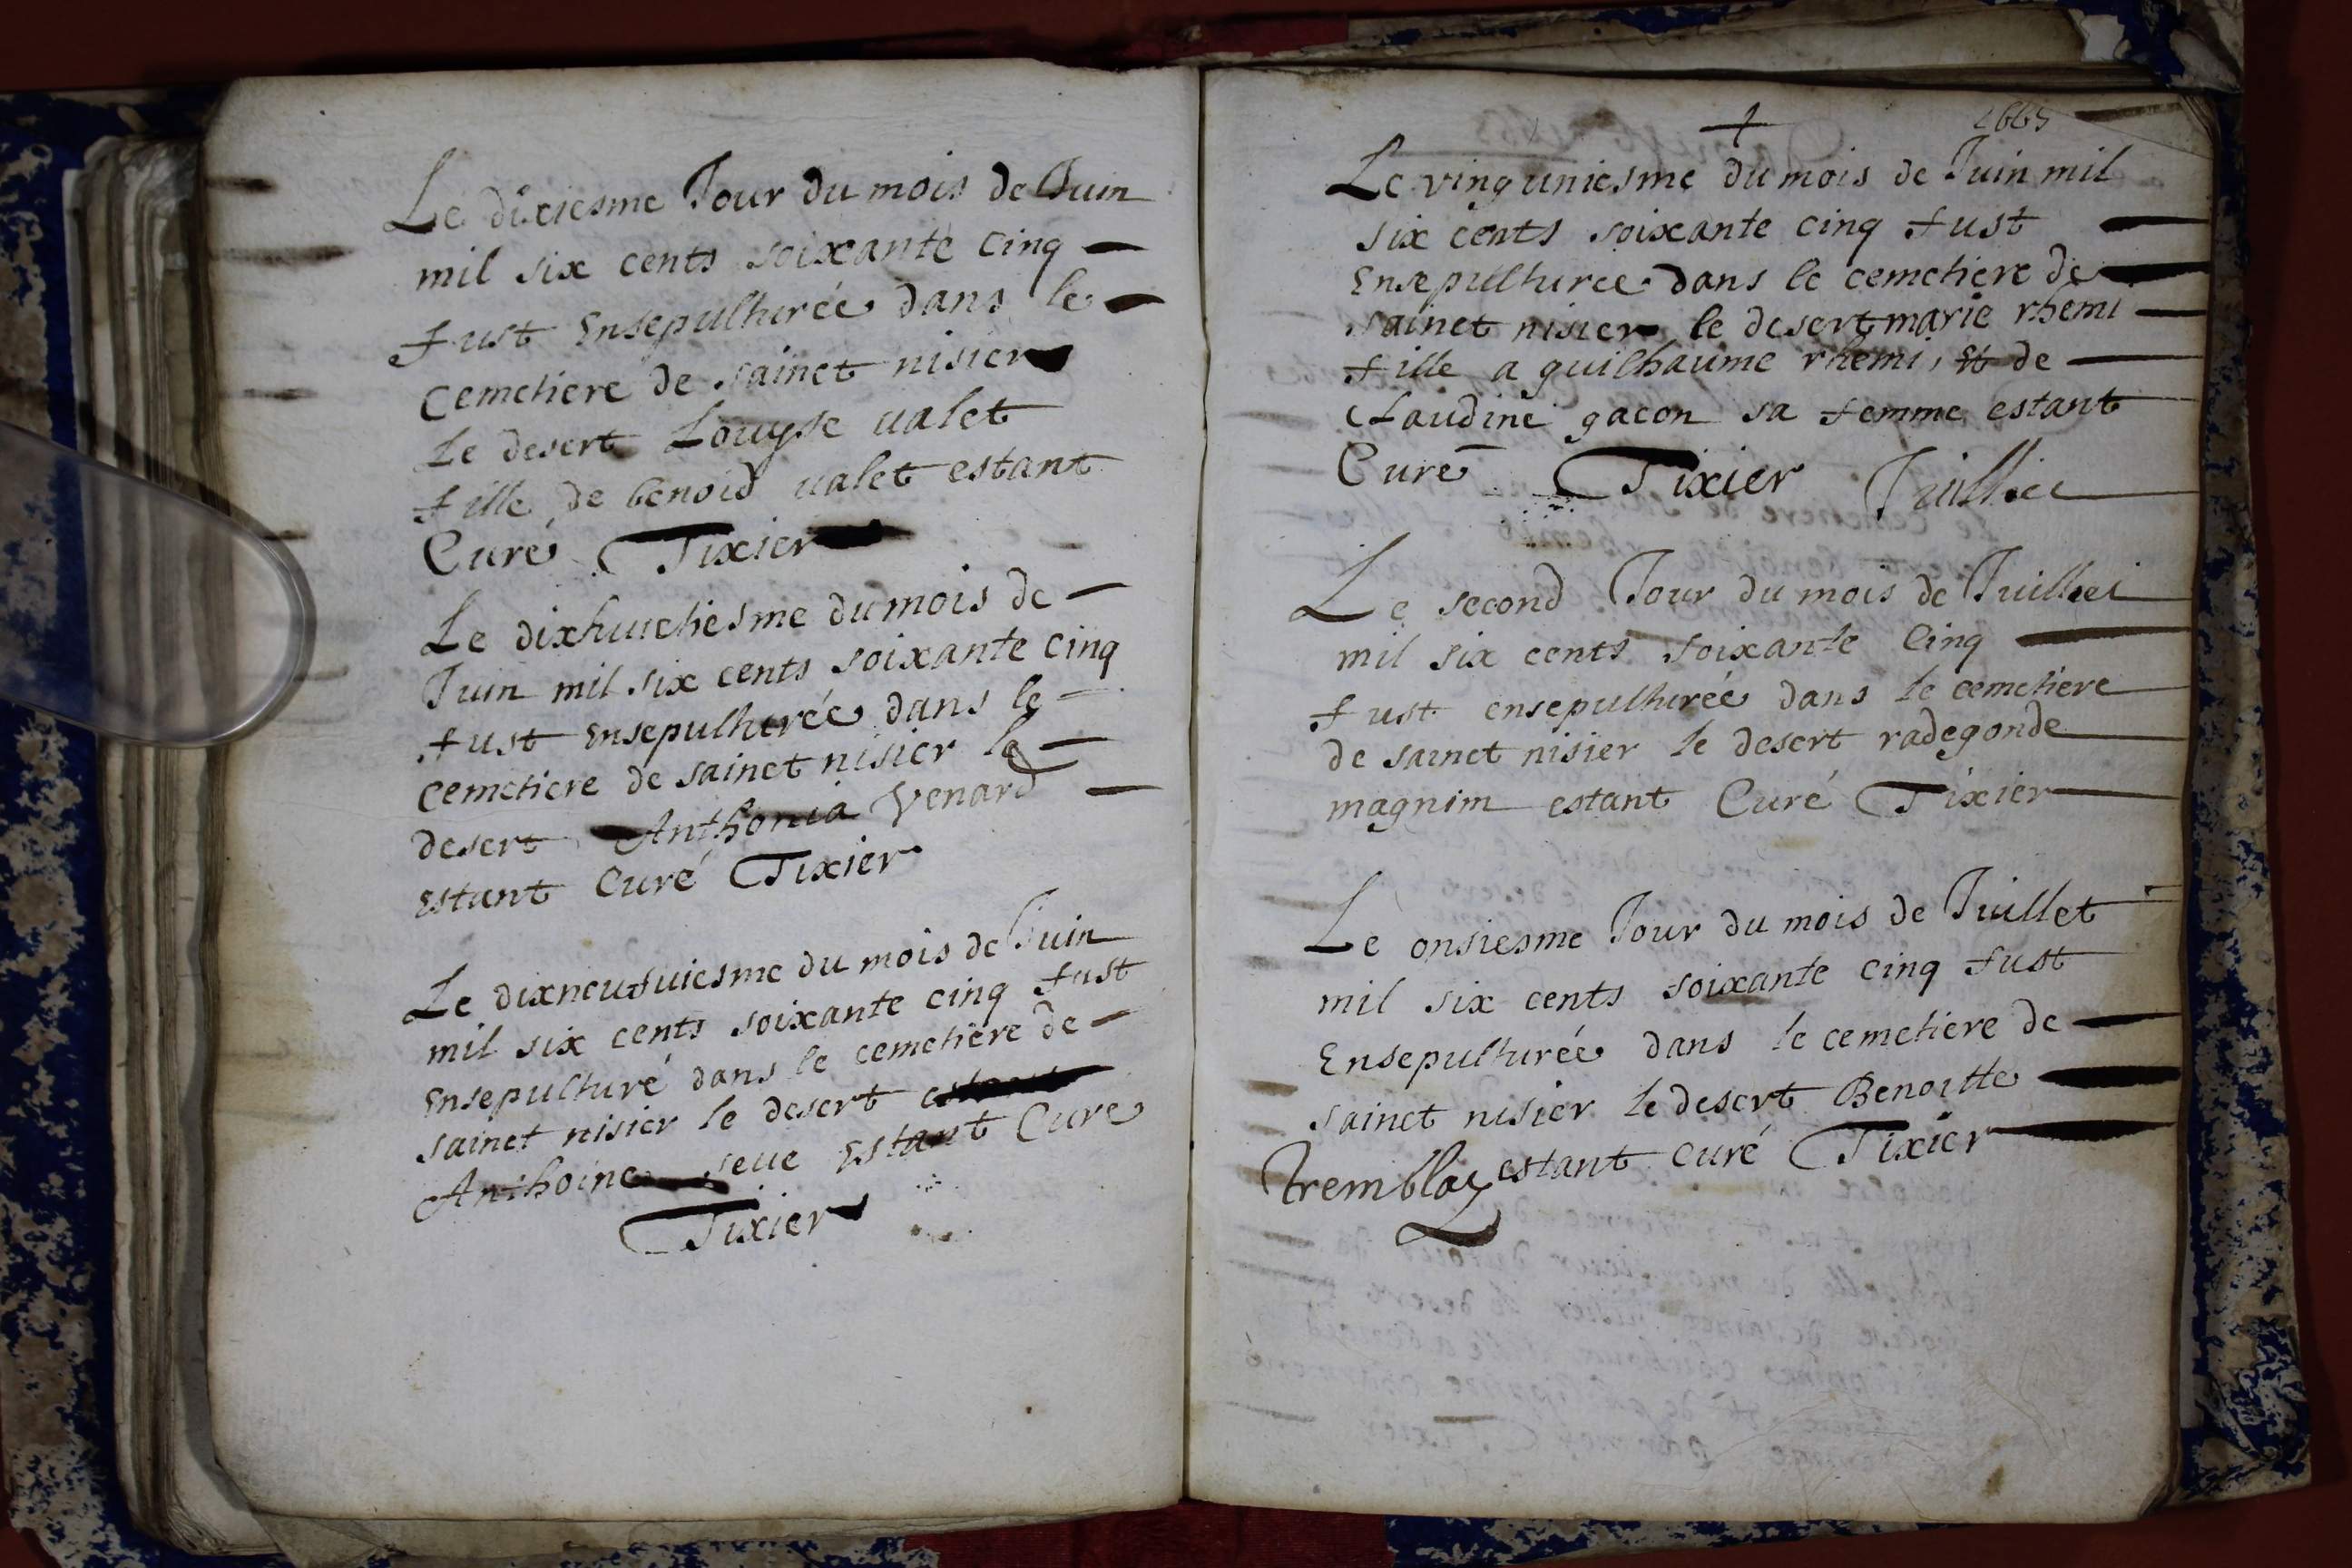 Le dixiesme Jour du mois de Juin
mil six cents soixante cinq
fust Ensepulturée dans le
Cemetiere de sainct nisier
le desert Louyse valet
fille de benoid valet estant
Curé Tixier
Le dixhuictiesme du mois de
Juin mil six cents soixante cinq
fust Ensepulturée dans le
cemetiere de sainct nisier le
desert Anthonia Venard
Estant Curé Tixier
Le dixneufuiesme du mois de Juin
mil six cents soixante cinq fust
Ensepulturé dans le cemetiere de
sainct nisier le desert estant
Anthoine seue Estant Curé
Tixier
1665
Le vinguniesme du mois de Juin mil
six cents soixante cinq fust
Ensepulturee dans le cemetiere de
sainct nisier le desert marie rhemi
fille a guilhaume rhemi, Et de
Claudine gacon sa femme estant
Curé Tixier Juillet
Le second Jour du mois de Juillet
mil six cents soixante Cinq
fust ensepulturée dans le cemetiere
de sainct nisier le desert radegonde
magnim estant Curé Tixier
Le onsiesme Jour du mois de Juillet
mil six cents soixante cinq fust
Ensepulturée dans le cemetiere de
sainct nisier le desert Benoitte
Tremblay estant curé Tixier